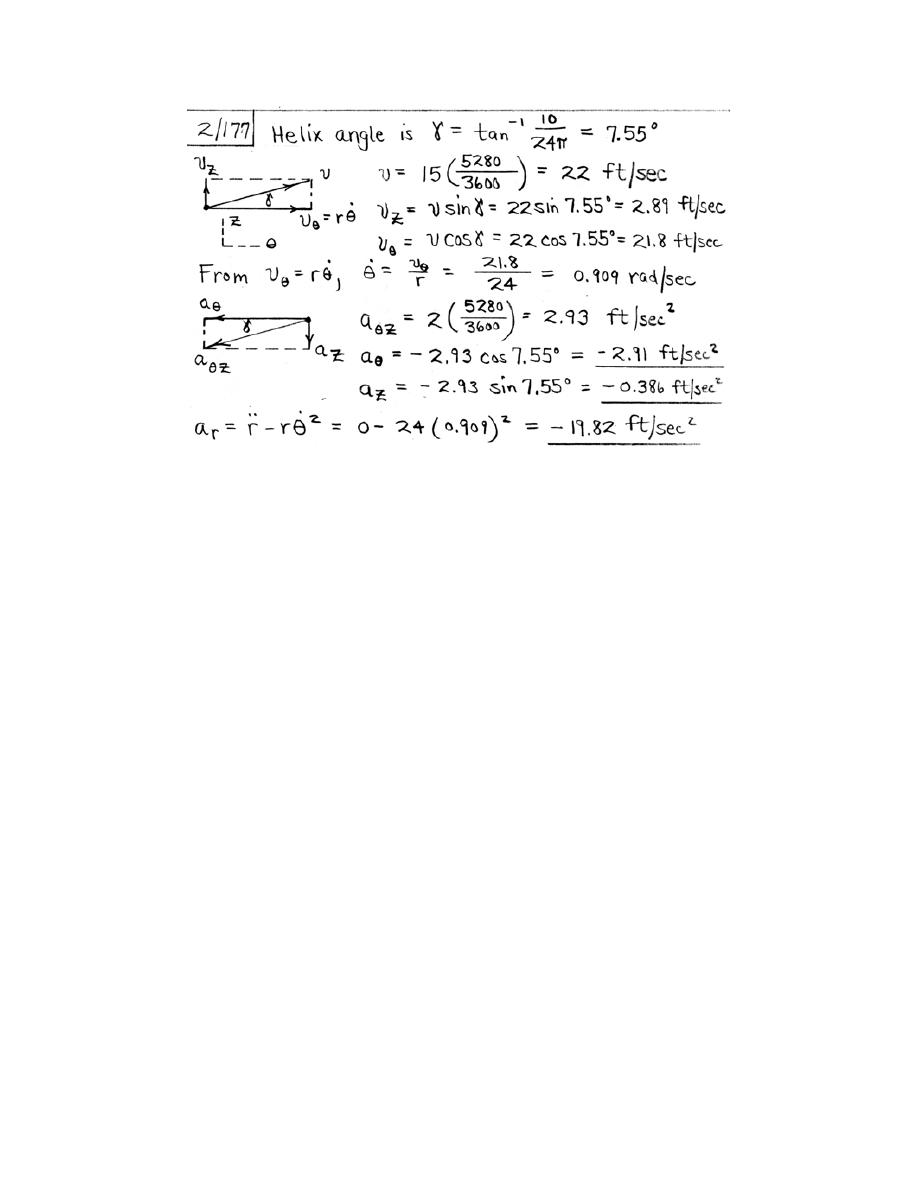 2/177 Helix angle is γ = tan⁻¹ 10/24π = 7.55°
v_z v v = 15(5280/3600) = 22 ft/sec
γ
z v_θ = rθ̇ v_z = v sin γ = 22 sin 7.55° = 2.89 ft/sec
θ v_θ = v cos γ = 22 cos 7.55° = 21.8 ft/sec
From v_θ = rθ̇, θ̇ = v_θ/r = 21.8/24 = 0.909 rad/sec
a_θ
γ a_θz = 2(5280/3600) = 2.93 ft/sec²
a_θz a_z a_θ = -2.93 cos 7.55° = -2.91 ft/sec²
a_z = -2.93 sin 7.55° = -0.386 ft/sec²
a_r = r̈ - rθ̇² = 0 - 24(0.909)² = -19.82 ft/sec²